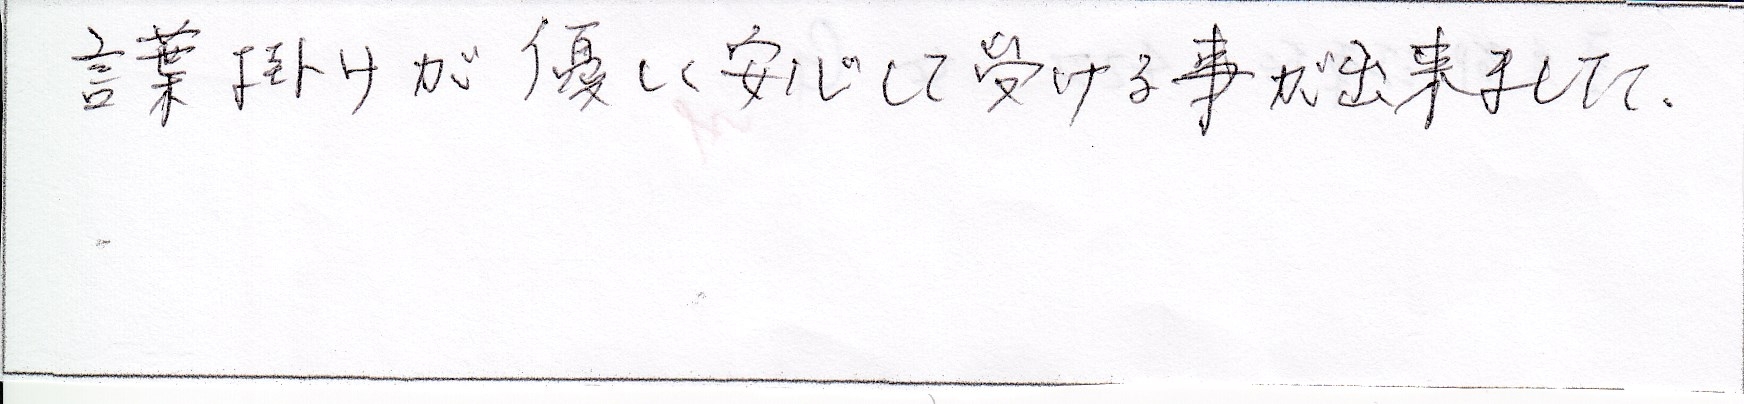 言葉掛けが優しく安心して受ける事が出来ました.